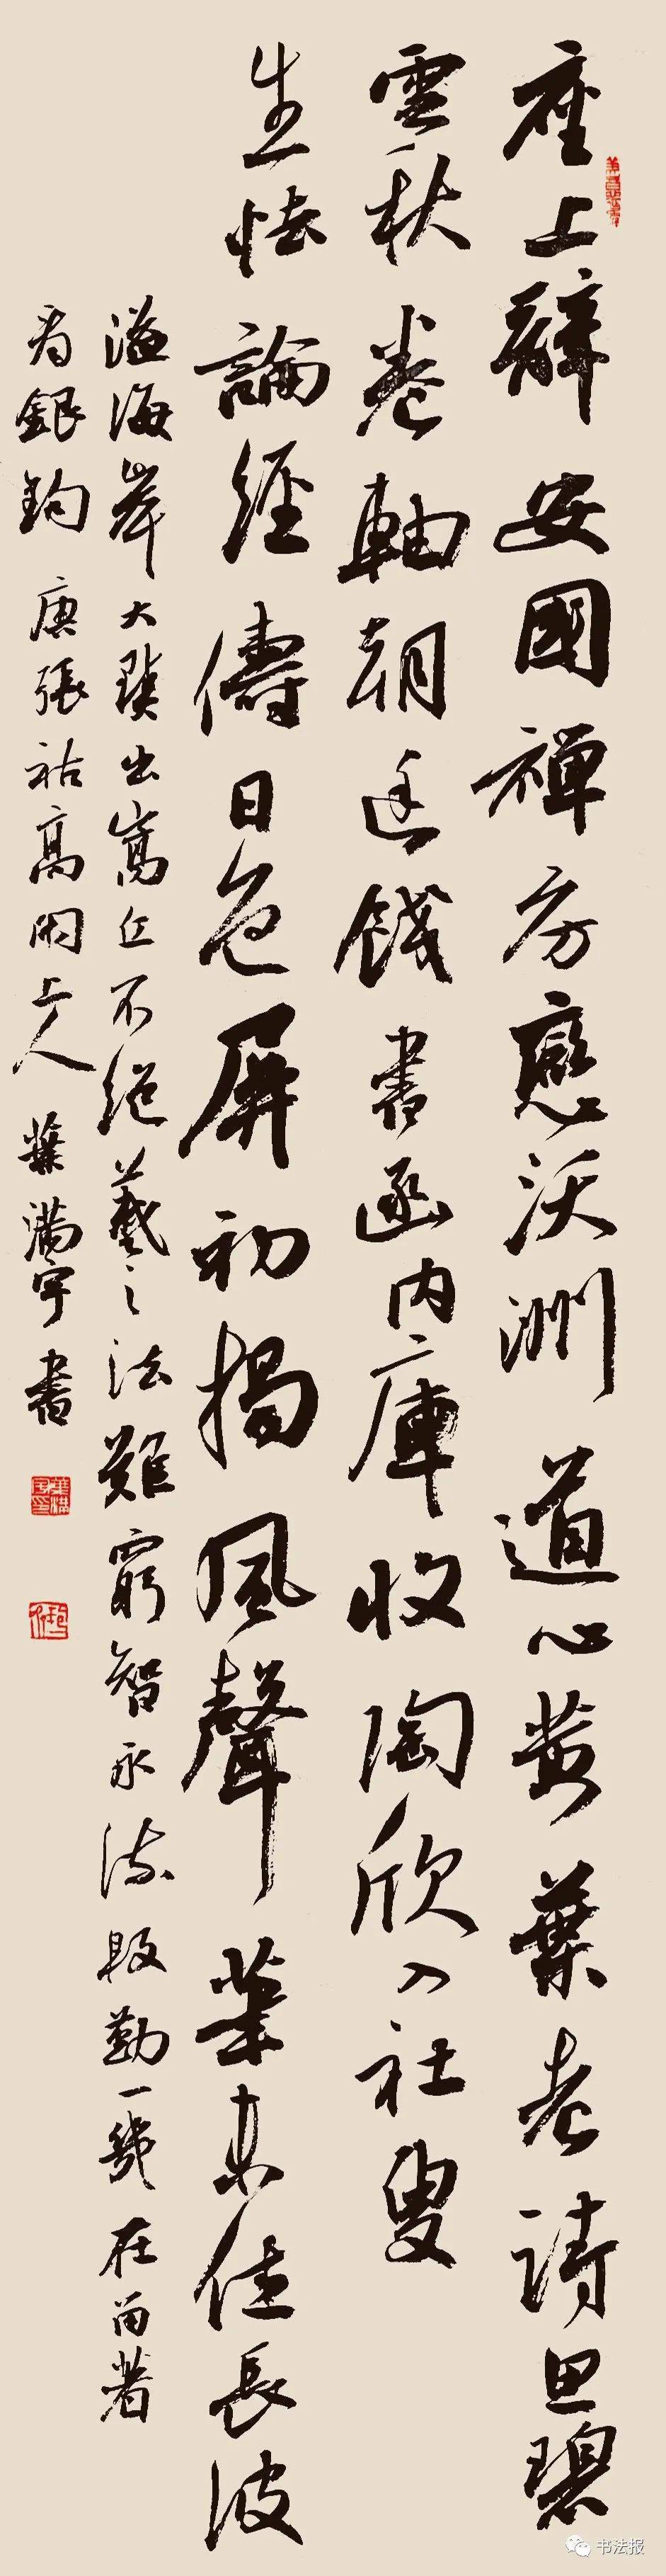 座上辭安國禪房戀沃洲道心黃葉老詩思碧
雲秋卷軸朝廷餞書函內庫收陶欣入社叟
生怯論經儔日色屏初揭風聲筆未休長波
溢海岸大點出嵩丘不絕羲之法難窮智永流殷勤一牋在留著
看銀鉤 唐張祜高閑上人 葉滿宇書
书法报